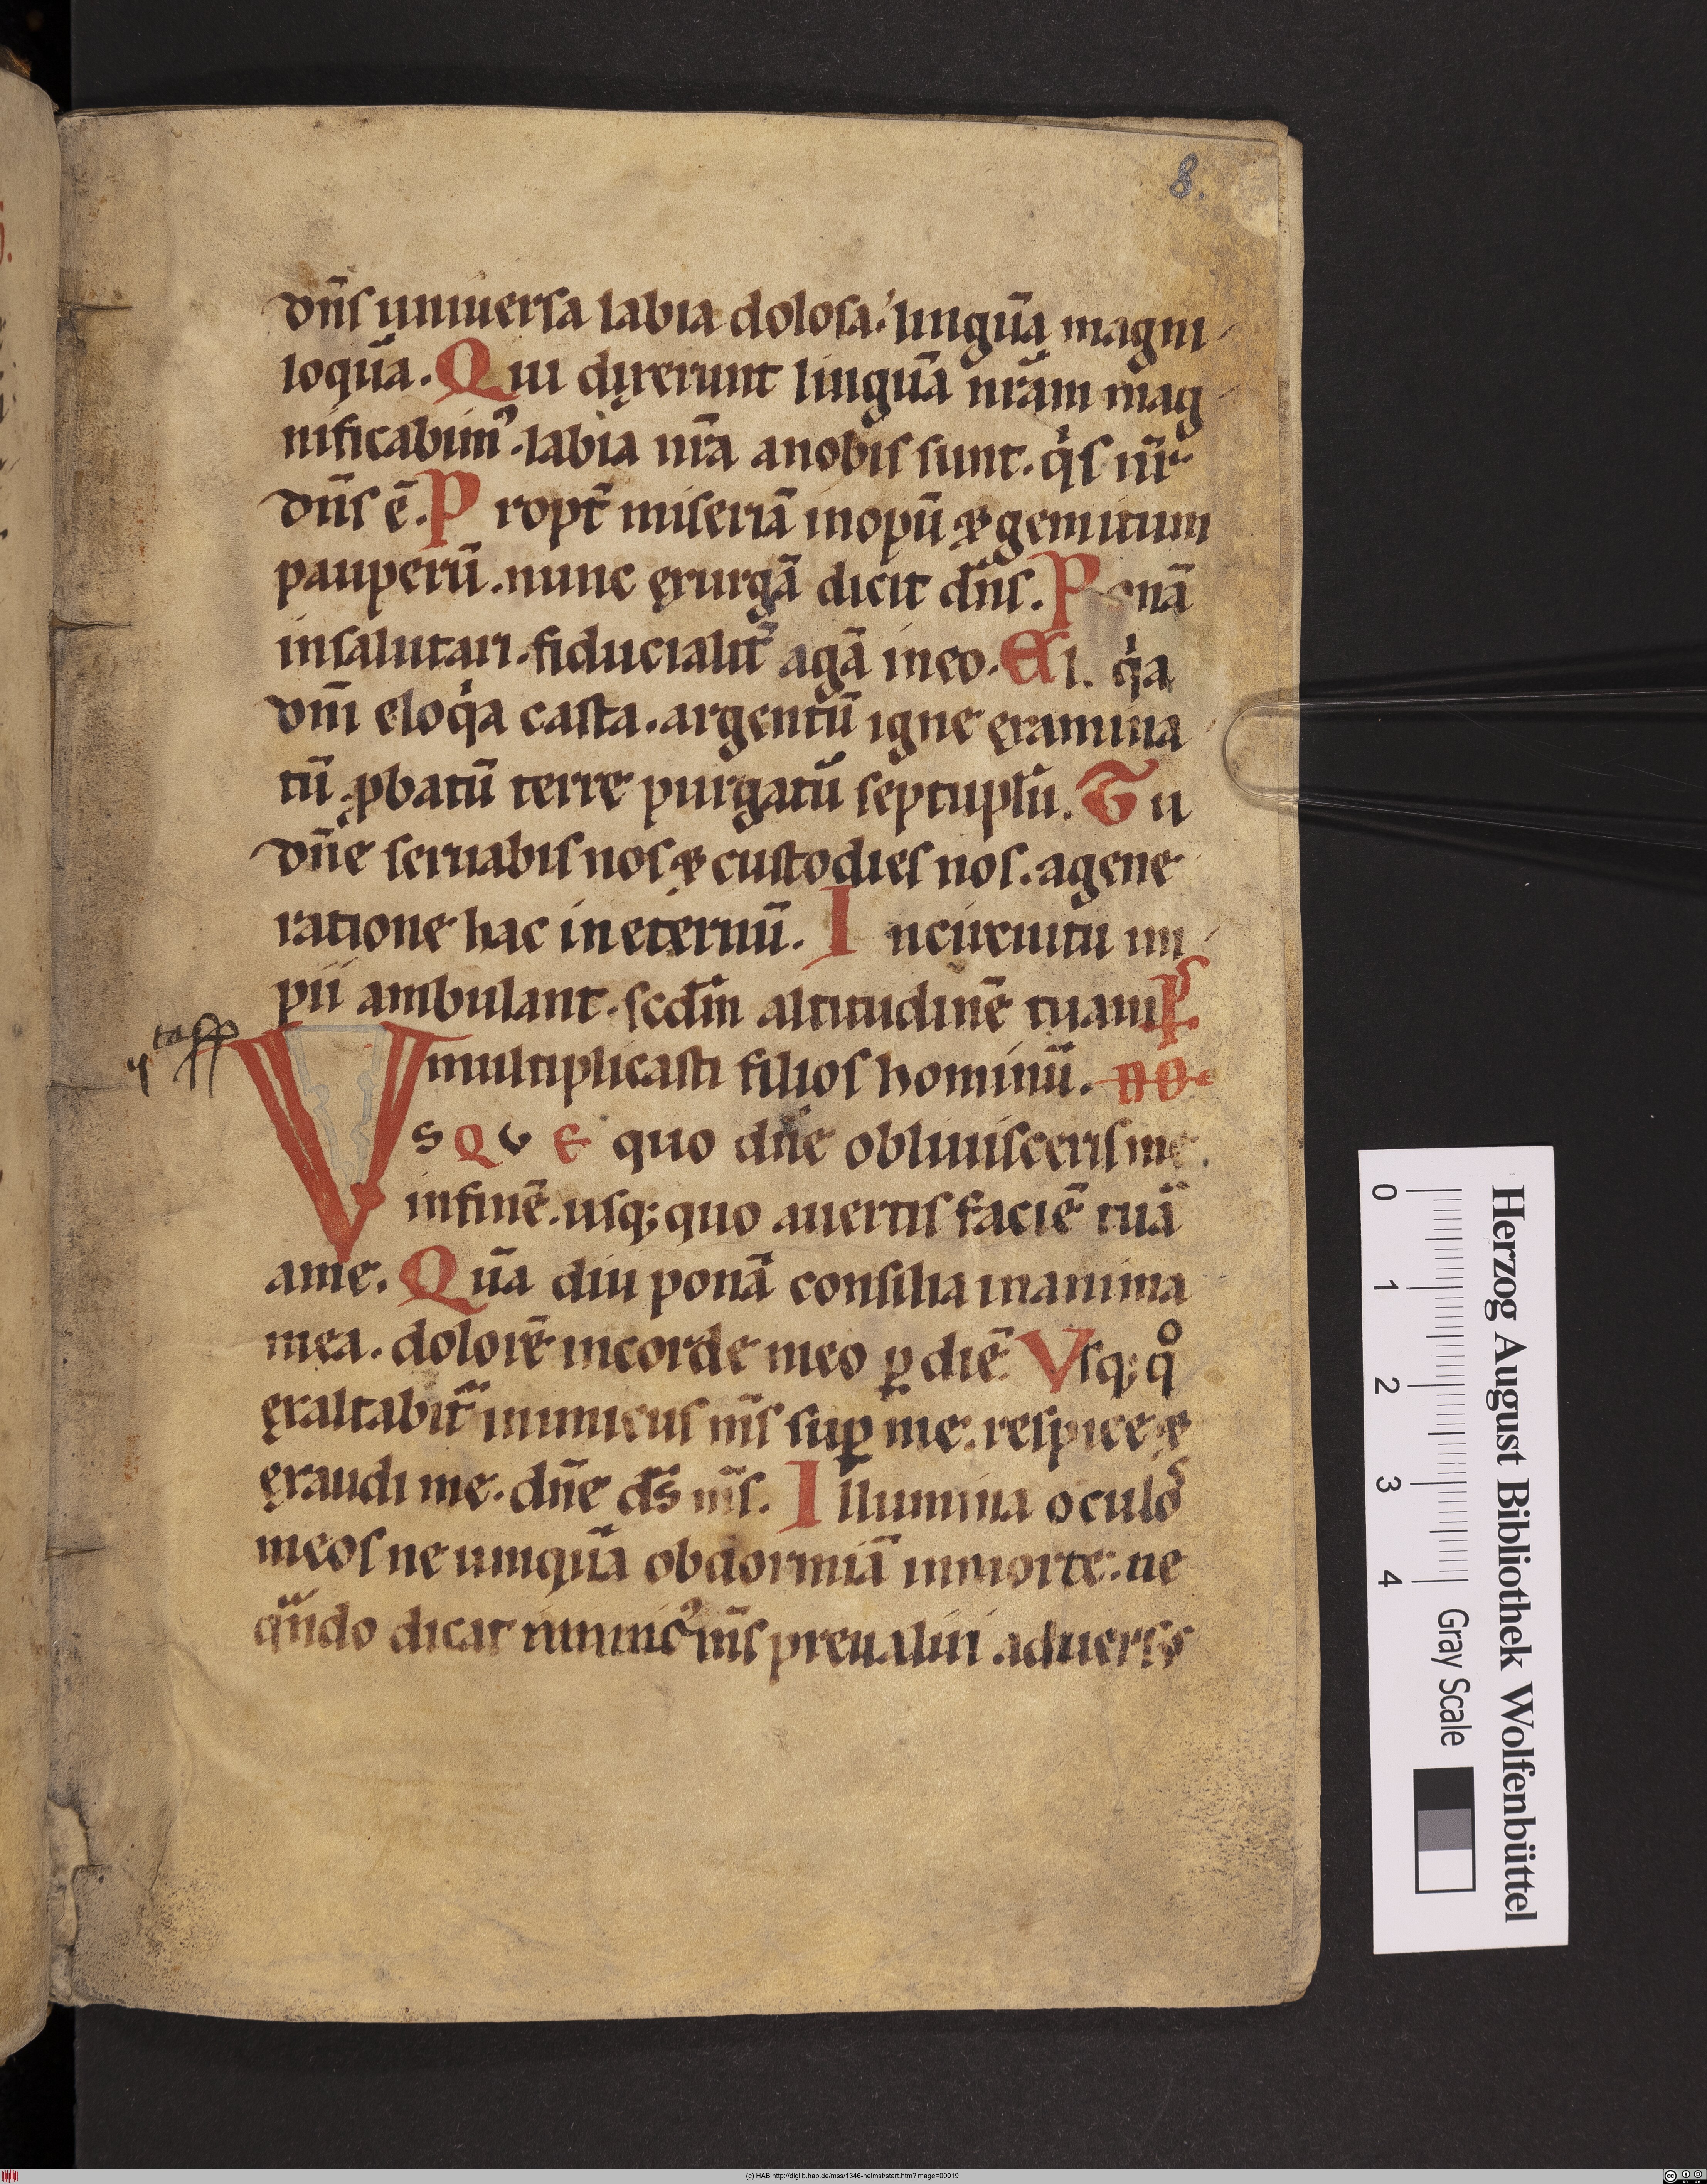 8.
dn̄s uniuersa labia dolosa. linguā magni
loquā. Qui dixerunt linguā nrām mag
nificabim᾿. labia nr̄a anobis sunt. qͥs nr̄
dn̄s ē. Propt̄ miseriā inopū & gemitum
pauperū. nunc exurgā dicit dn̄s. Ponā
insalutari. fiducialit̄ agā ineo. El. qͥa
dnī eloqͥa casta. argentū igne examina
tū ꝓbatū terre purgatū septuplū. Tu
dn̄e seruabis nos & custodies nos. agene
ratione hac ineternū. Incircuitu im
pii ambulant. scdm̄ altitudinē tuam Ps
multiplicasti filios hominū.
VSQVE quo dn̄e obliuisceris me.
infinē. usq; quo auertis faciē tuā
ame. Quā diu ponā consilia inanima
mea. dolorē incorde meo ꝑ diē. Vsq; qͦ
exaltabit̄ inimicus m̄s suꝑ me. respice &
exaudi me. dn̄e ds̄ m̄s. Illumina oculos
meos ne umquā obdormiā inmorte. ne
qn̄do dicat inimic᾿ m̄s preualui aduersꝰ
Herzog August Bibliothek Wolfenbüttel
0 1 2 3 4 Gray Scale
(c) HAB http://diglib.hab.de/mss/1346-helmst/start.htm?image=00019